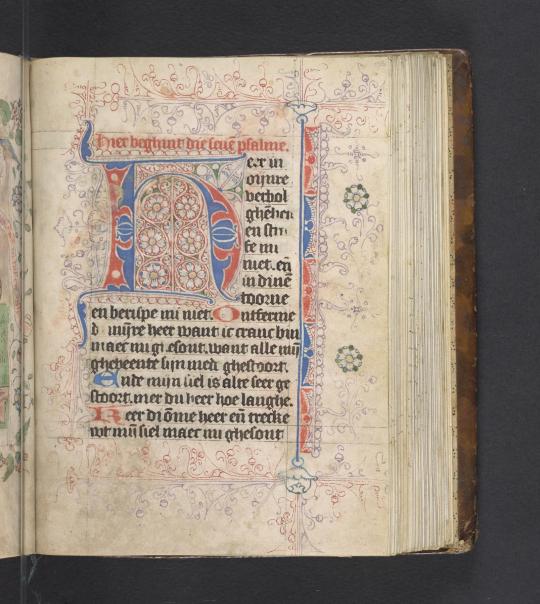 Hier beghint die seuē psalme.
Here in
dijnre
verbol
ghēheit
en stra
fe mi
niet. eñ
in dinē
toorne
en berispe mi niet. Ontferme
d mijre heer want ic cranc bin
maec mi gesont. want alle mijn
ghebeente sijn mede ghestoort.
Ande mijn siel is alte seer ge
stoort. mer du heer hoe langhe.
Keer di ōme heer eñ trecke
wt mijn siel maec mi ghesont